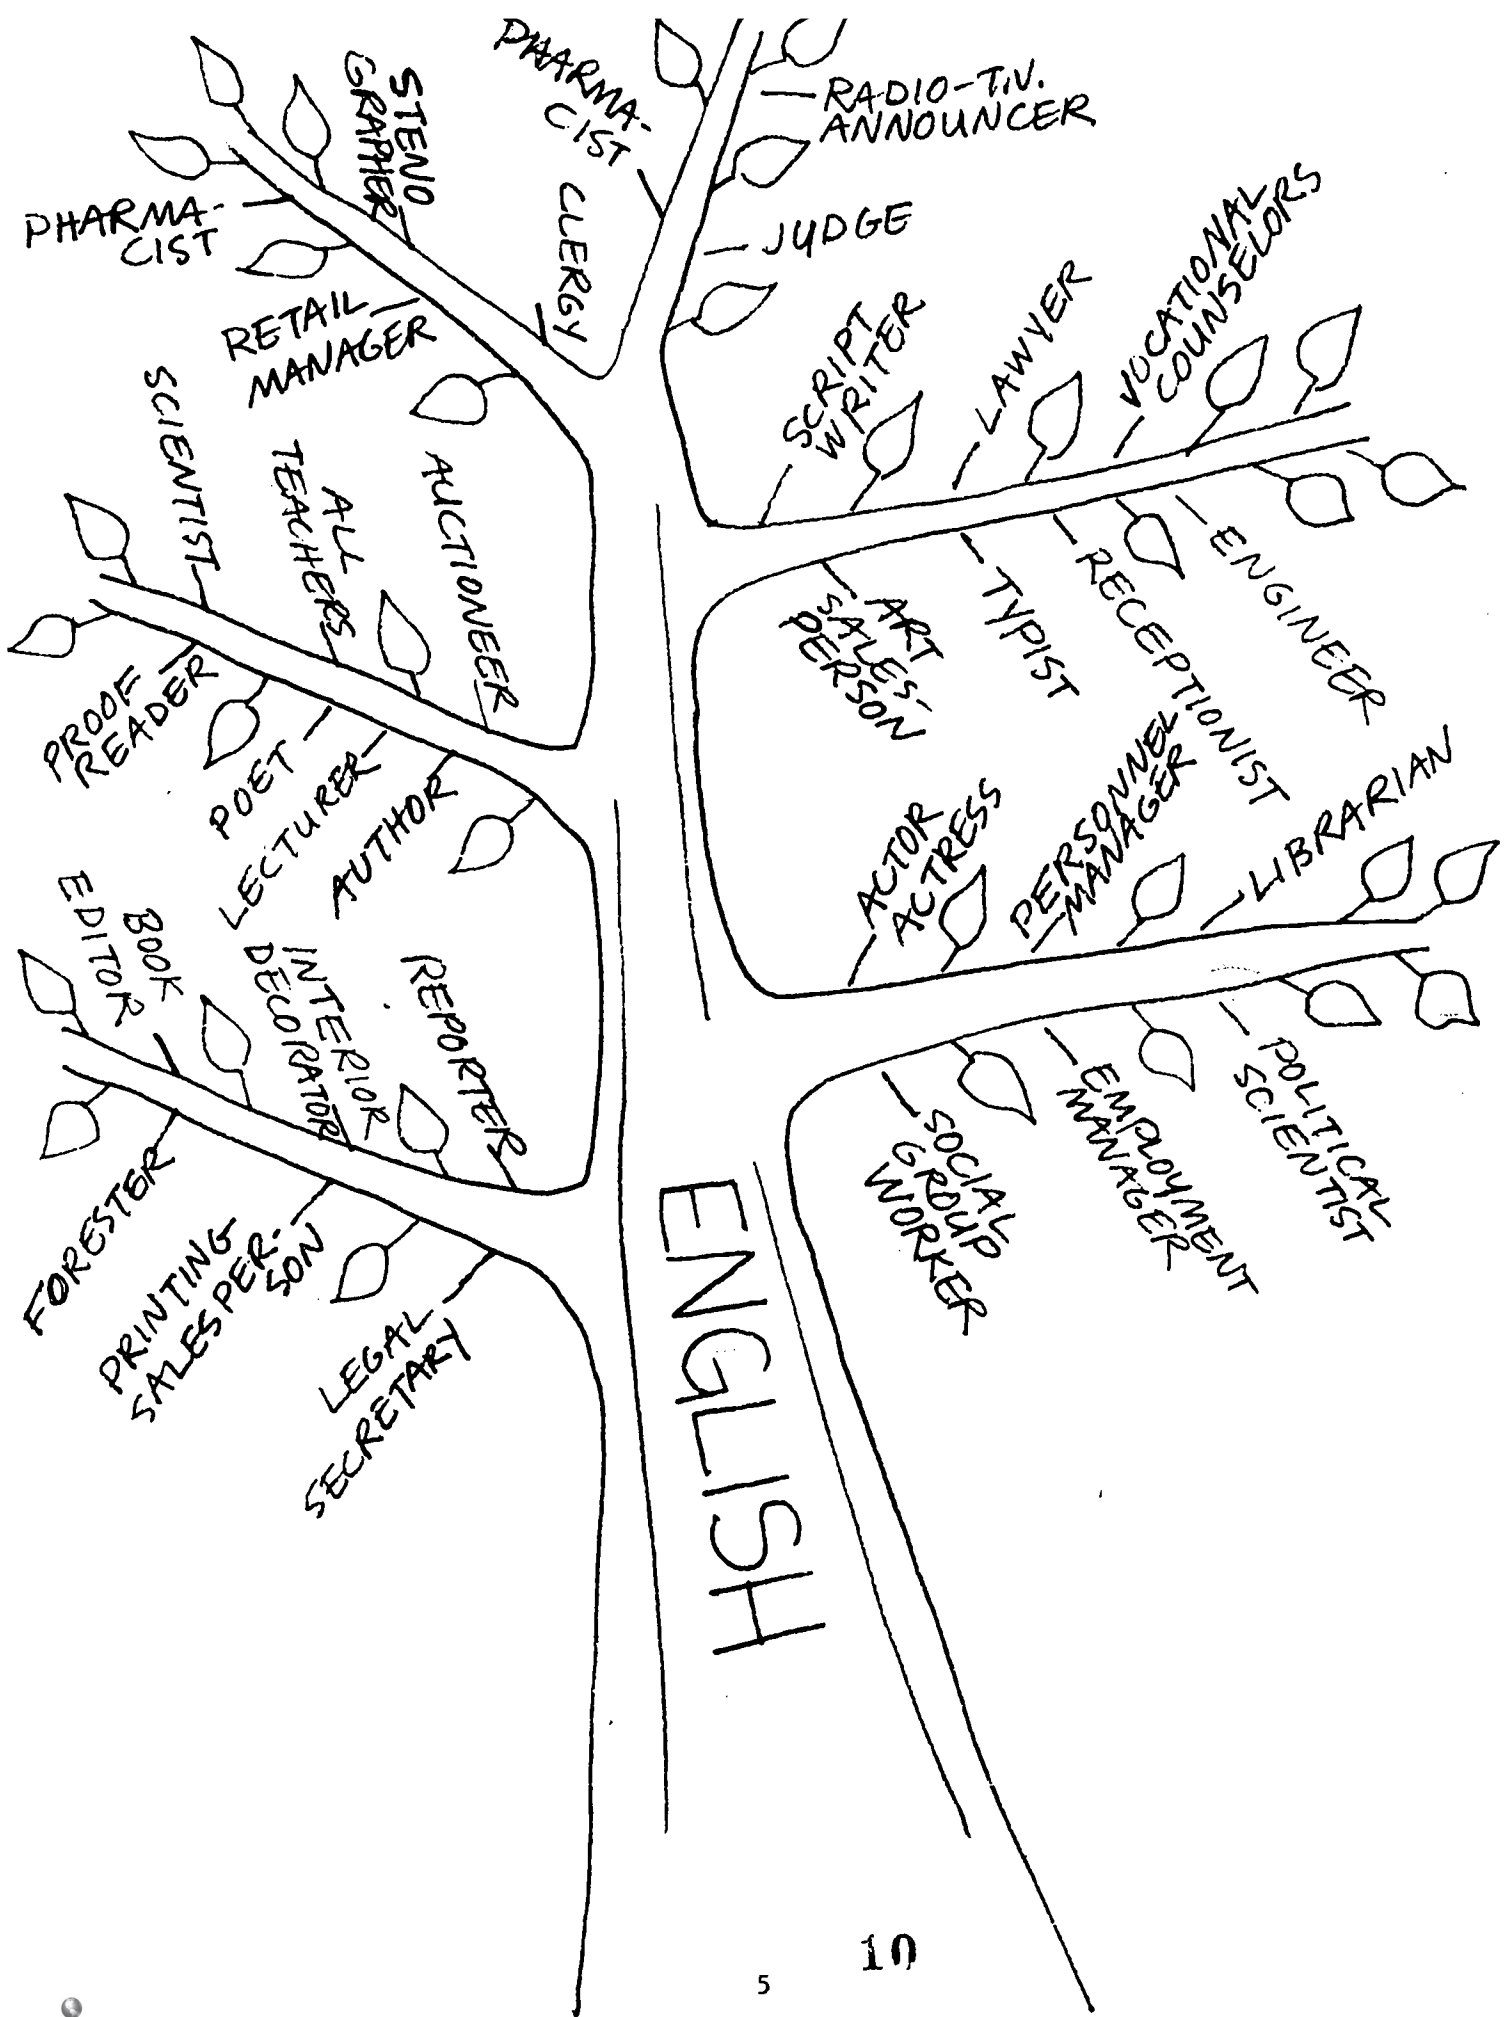 PHARMA-
CIST
STENO
GRAPHER
PHARMA-
CIST
RADIO-T.V.
ANNOUNCER
CLERGY
JUDGE
RETAIL
MANAGER
SCRIPT
WRITER
LAWYER
VOCATIONAL
COUNSELORS
SCIENTIST
ALL
TEACHERS
AUCTIONEER
ART
SALES-
PERSON
TYPIST
RECEPTIONIST
ENGINEER
PROOF
READER
POET
LECTURER
AUTHOR
ACTOR
ACTRESS
PERSONNEL
MANAGER
LIBRARIAN
BOOK
EDITOR
INTERIOR
DECORATOR
REPORTER
SOCIAL
GROUP
WORKER
EMPLOYMENT
MANAGER
POLITICAL
SCIENTIST
FORESTER
PRINTING
SALESPER-
SON
LEGAL
SECRETARY
ENGLISH
10
5